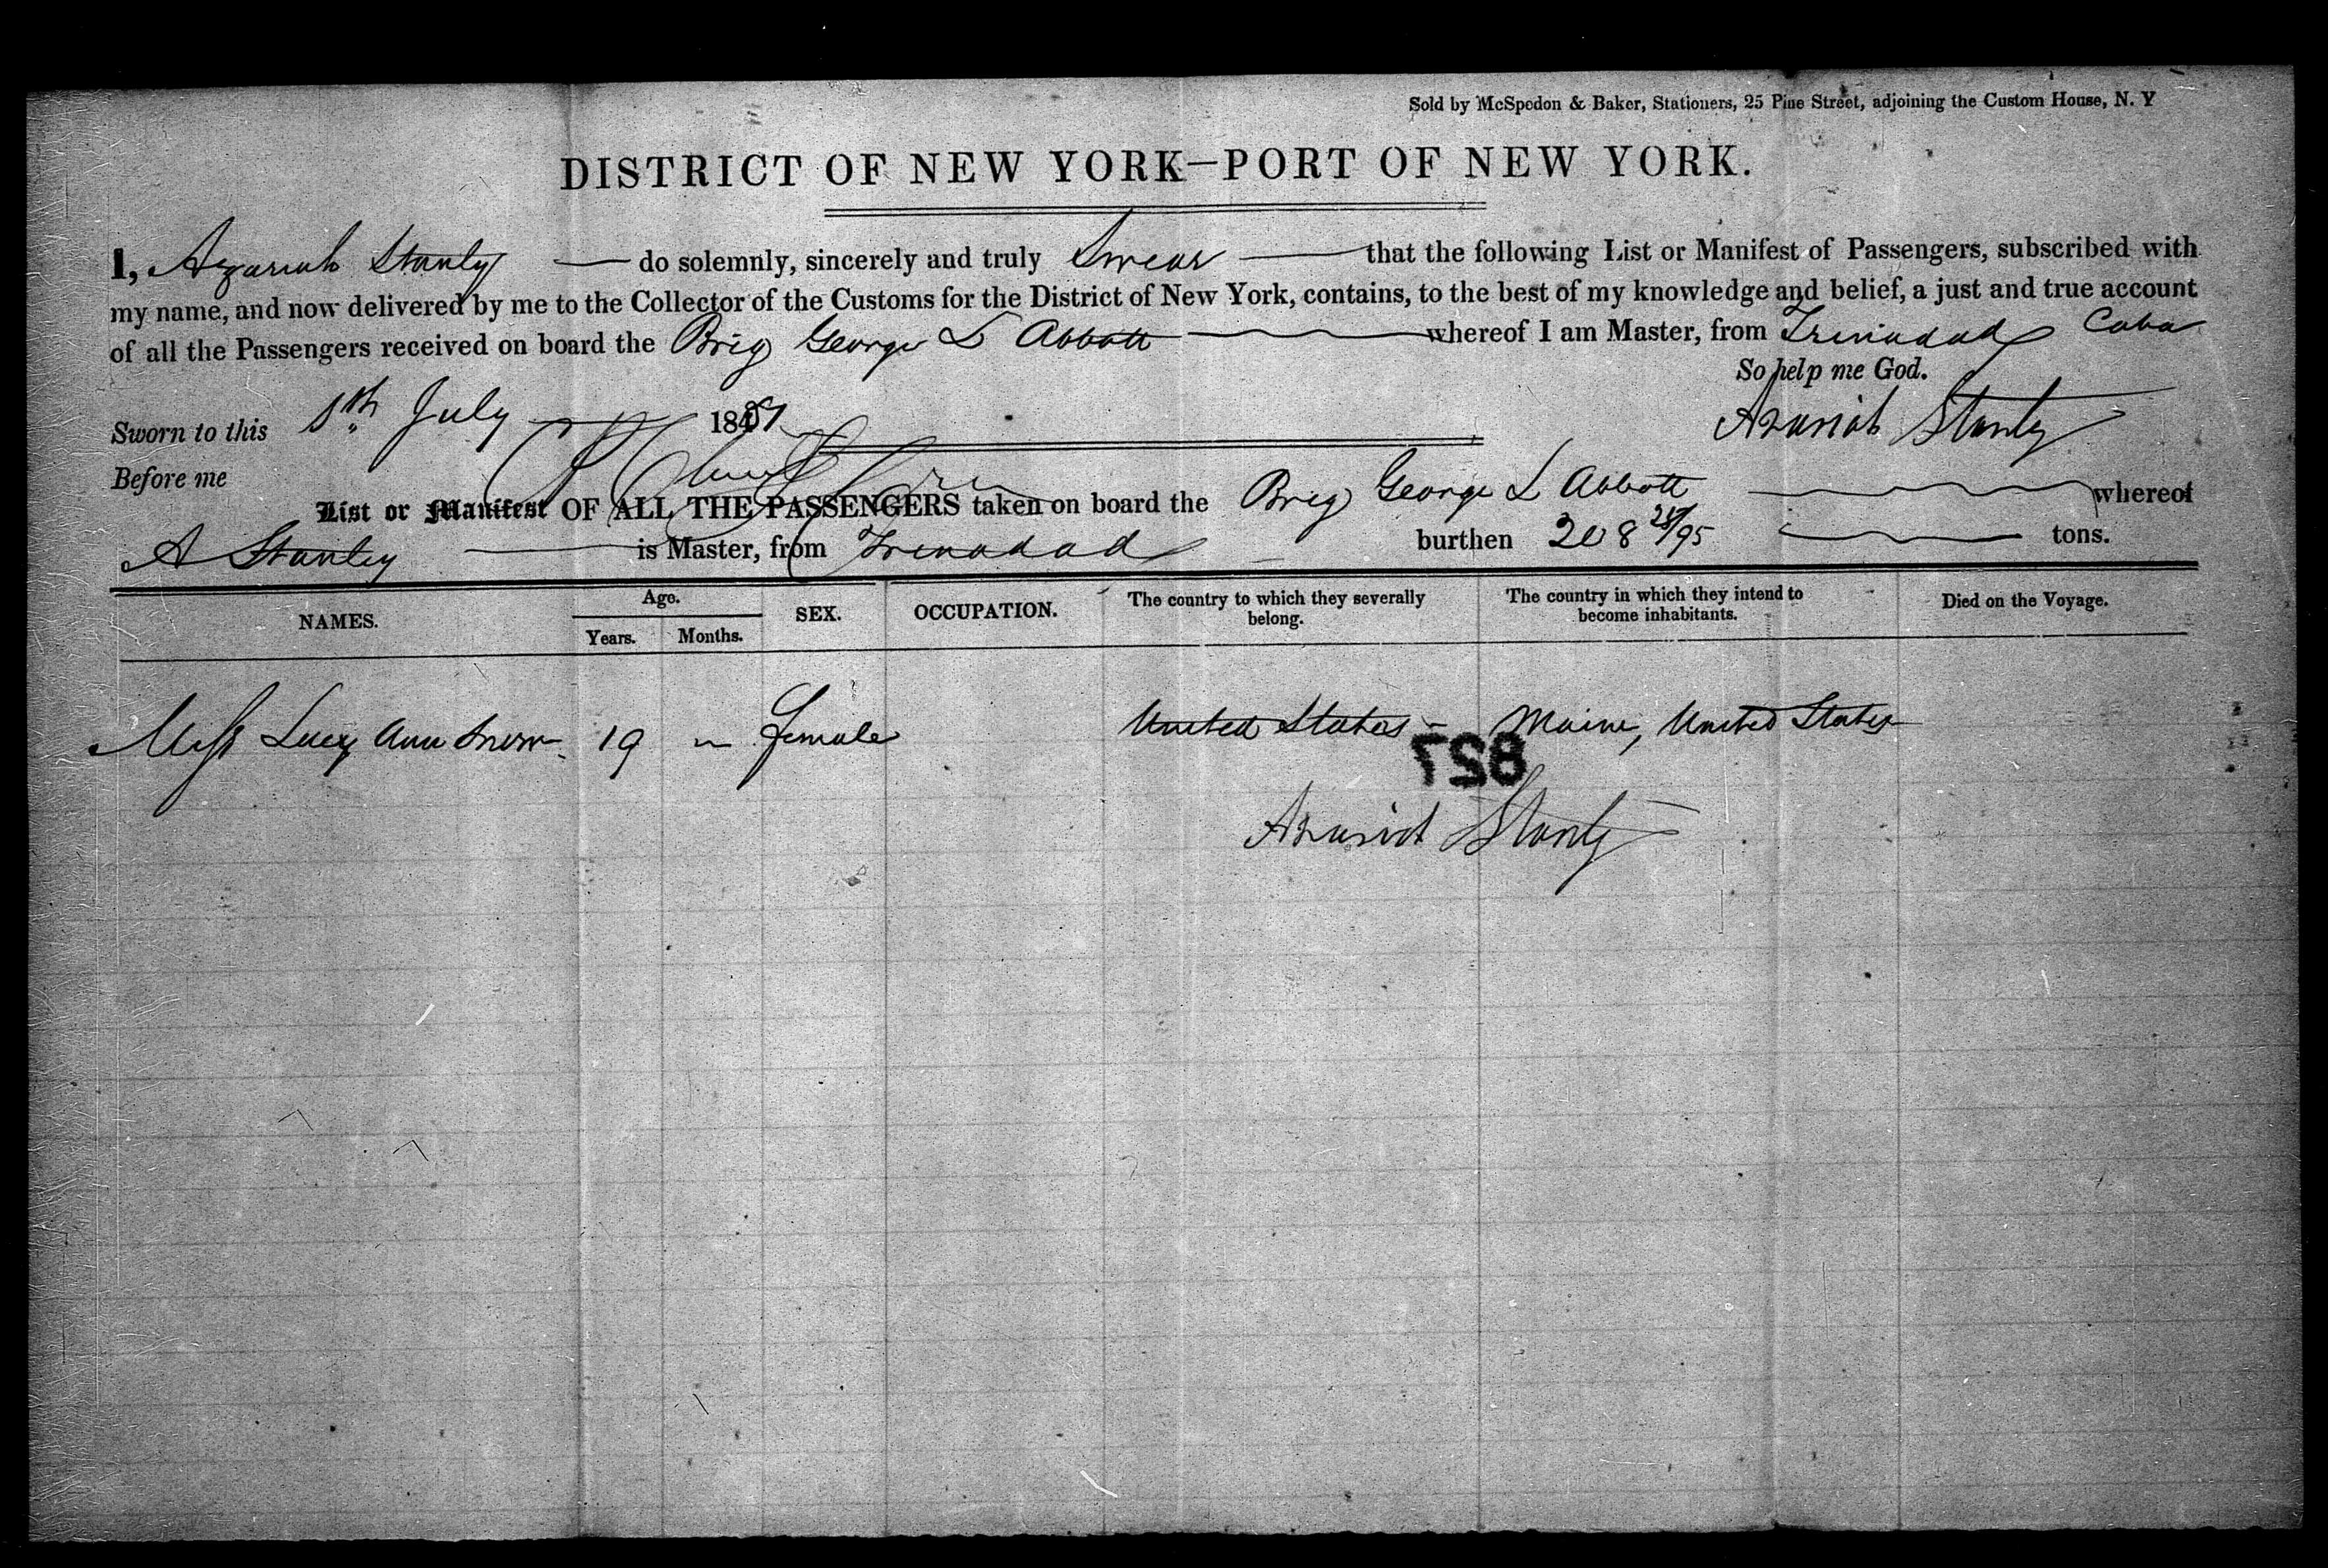 Sold by McSpedon & Baker, Stationers, 25 Pine Street, adjoining the Custom House, N. Y
DISTRICT OF NEW YORK—PORT OF NEW YORK.
I, Azariah Stanly do solemnly, sincerely and truly Swear that the following List or Manifest of Passengers, subscribed with
my name, and now delivered by me to the Collector of the Customs for the District of New York, contains, to the best of my knowledge and belief, a just and true account
of all the Passengers received on board the Brig George L Abbott whereof I am Master, from Trinadad Cuba
So help me God.
Sworn to this July 18
Azariah Stanly
Before me
List or Manifest OF ALL THE PASSENGERS taken on board the Brig George L Abbott whereof
A Stanley is Master, from Trenadad burthen 208 /95 tons.
NAMES. Age. Years. Months. SEX. OCCUPATION. The country to which they severally belong. The country in which they intend to become inhabitants. Died on the Voyage.
Miss Lucy Ann Snow 19 female United States Maine, United States
827
Azariah Stanly